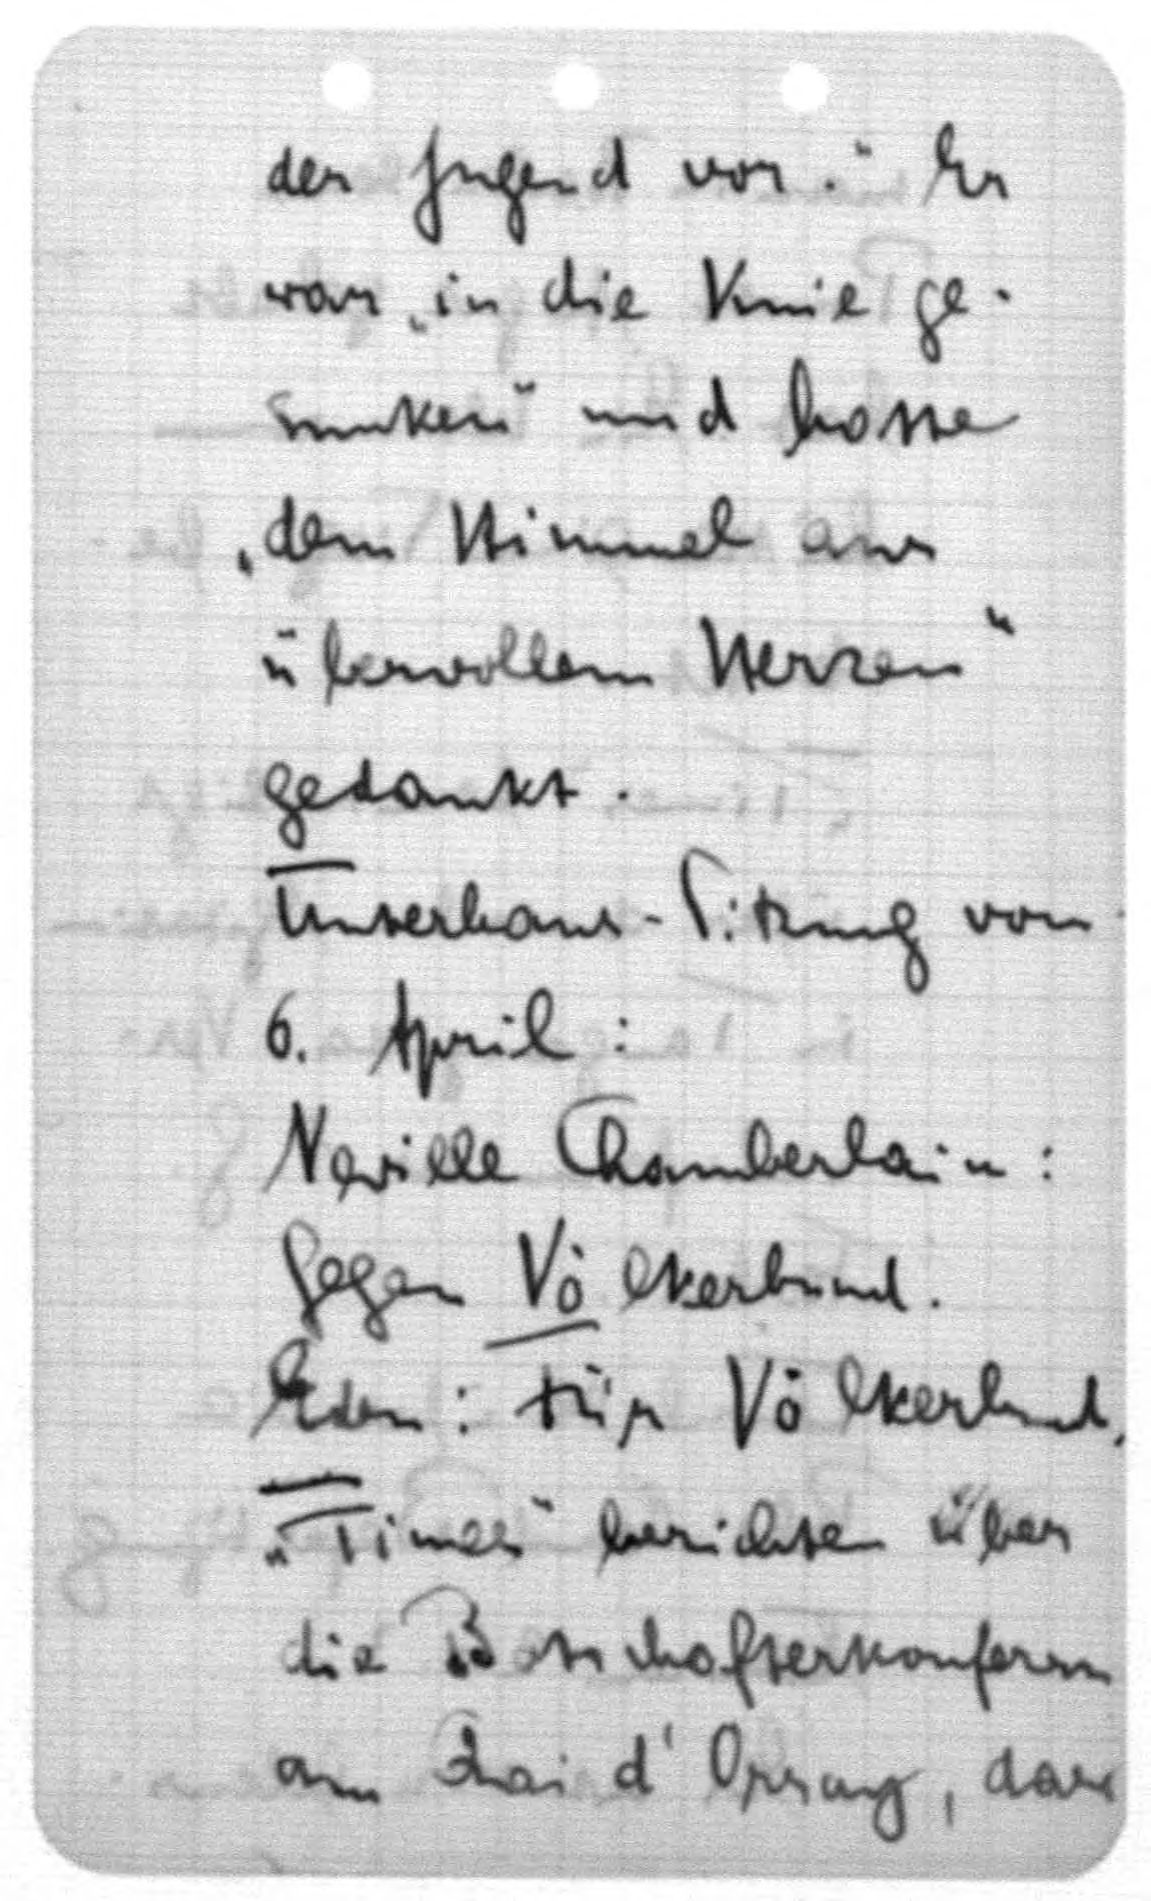 der Jugend vor.“ Er
war „in die Knie ge-
sunken“ und hatte
„dem Himmel aus
übervollem Herzen“
gedankt.
Unterhaus-Sitzung vom
6. April:
Neville Chamberlain:
Gegen Völkerbund.
Eden: für Völkerbund.
„Times“ berichten über
die Botschafterkonferenz
am Quai d'Orsay, dass